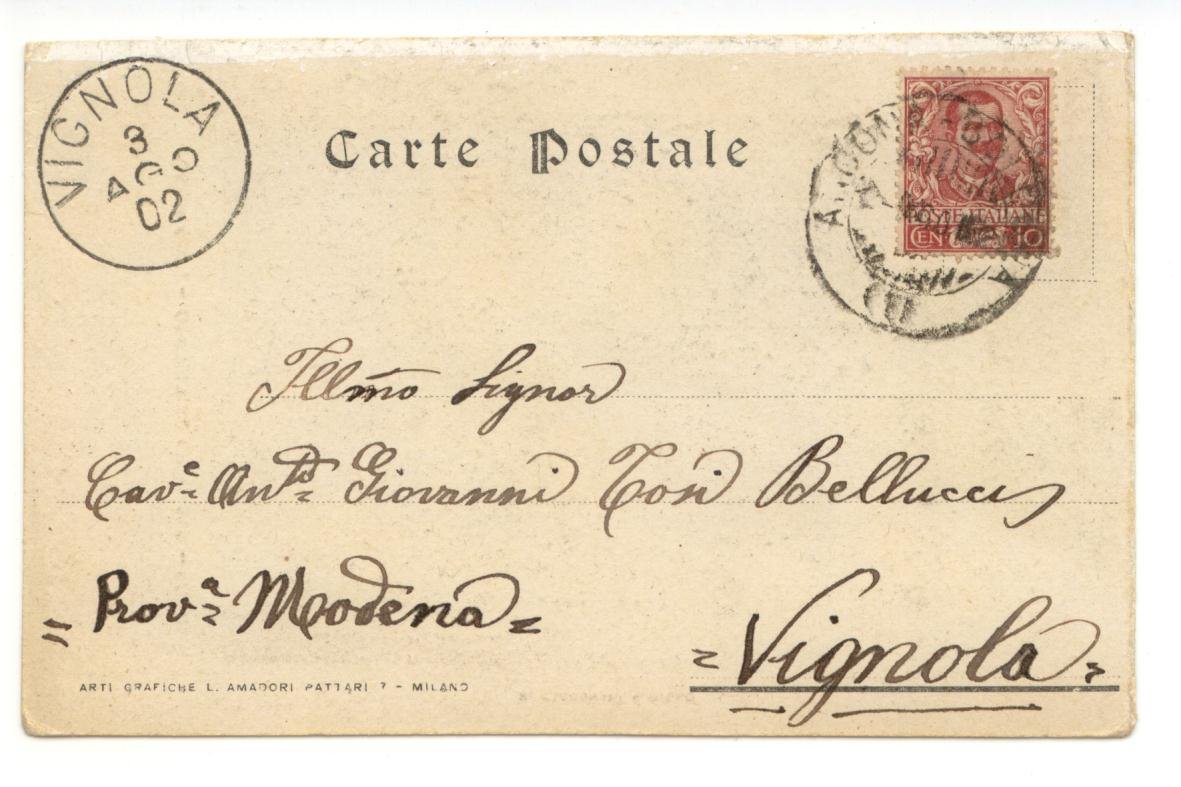 VIGNOLA
3
AGO
02
Carte Postale
POSTE ITALIANE
CENTESIMI 10
Illmo Signor
Cav.e Giovanni Tosi Bellucci
Prov.a Modena
Vignola
ARTI GRAFICHE L. AMADORI PATTARI 7 - MILANO